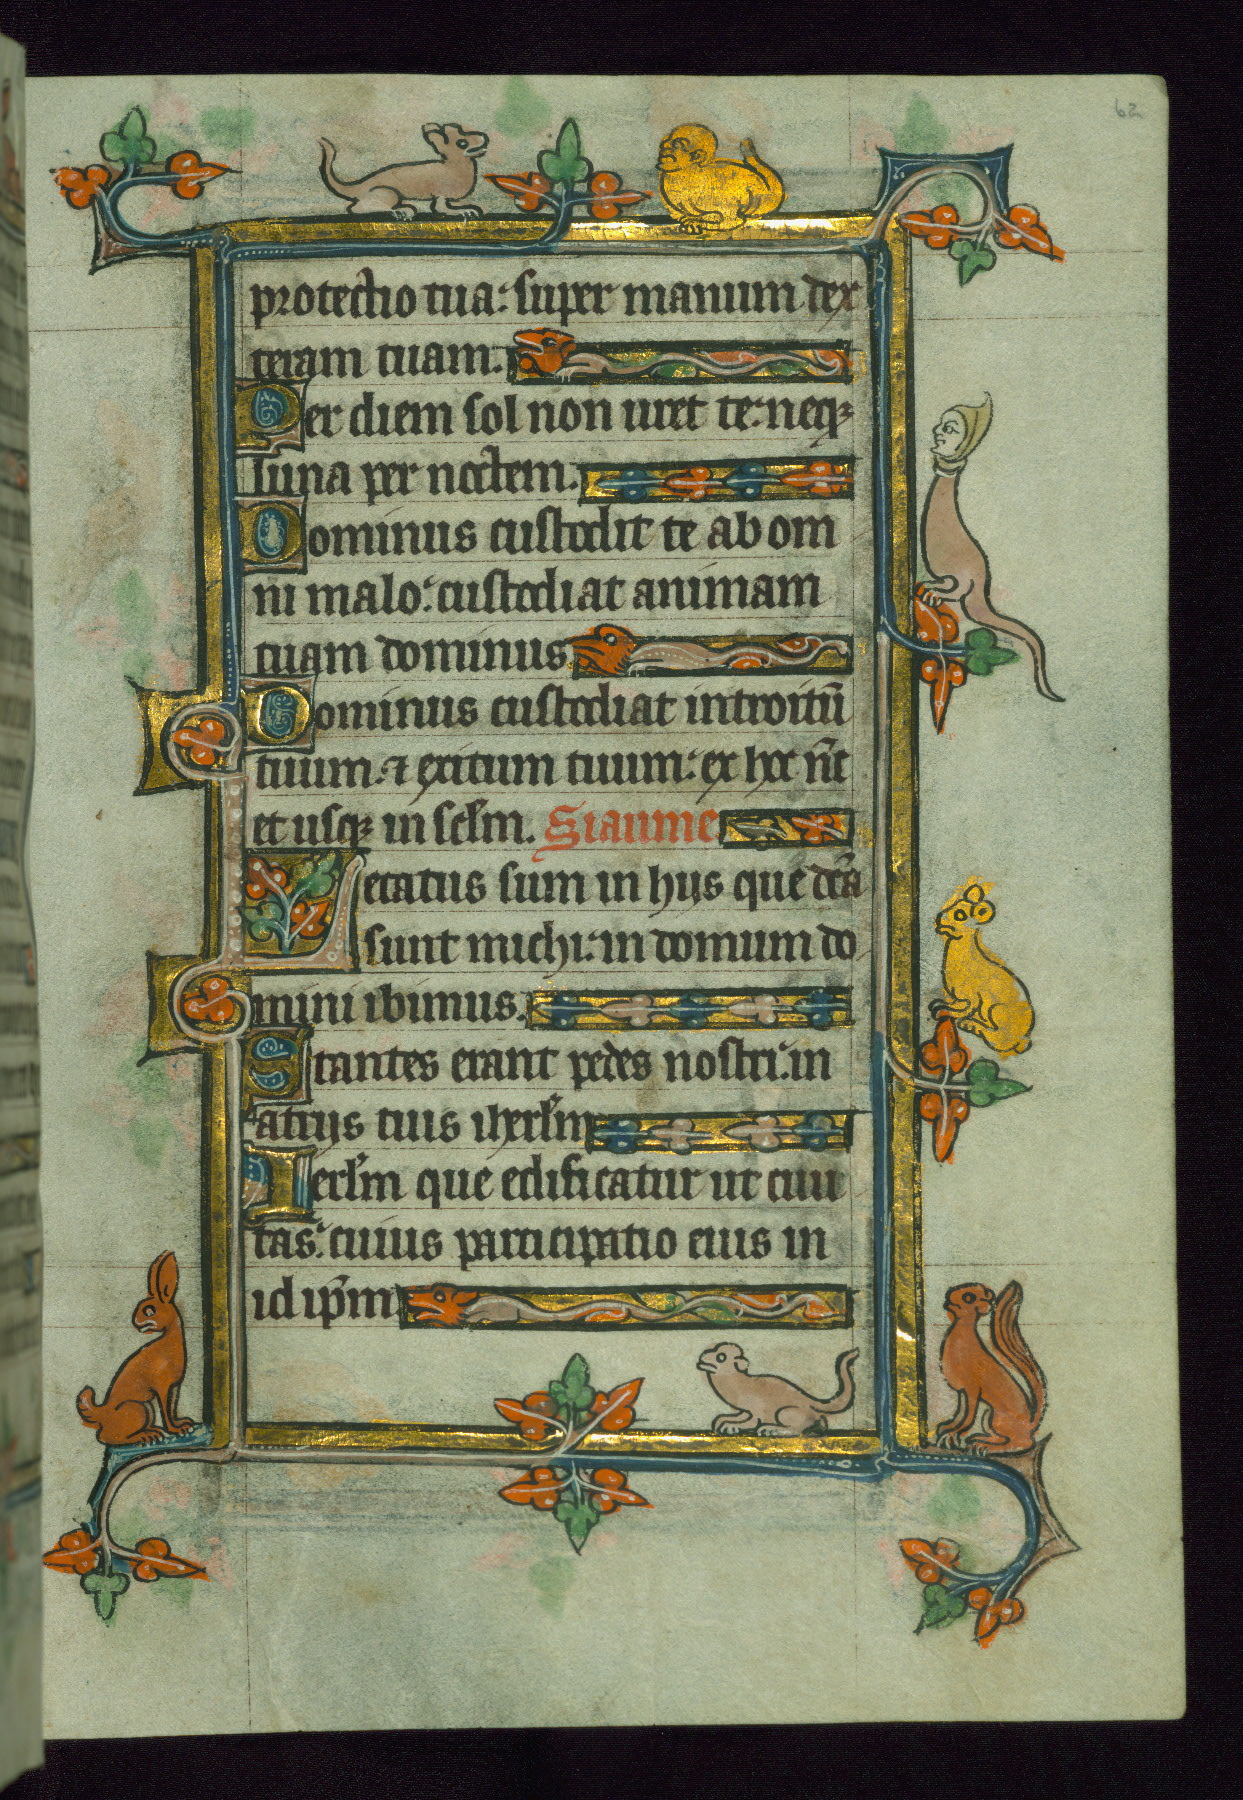 62
protectio tua: super manum dex
teram tuam.
Per diem sol non uret te: neqꝫ
luna per noctem.
Dominus custodit te ab om
ni malo: custodiat animam
tuam dominus
Dominus custodiat introitū
tuum: ⁊ exitum tuum: ex hoc nc̄
et usqꝫ in scl̄m. Siaume
Letatus sum in hijs que dc̄a
sunt michi: in domum do
mini ibimus.
Stantes erant pedes nostri: in
atrijs tuis iherl̄m
Ierl̄m que edificatur ut ciui
tas: cuius participatio eius in
id ip̄m